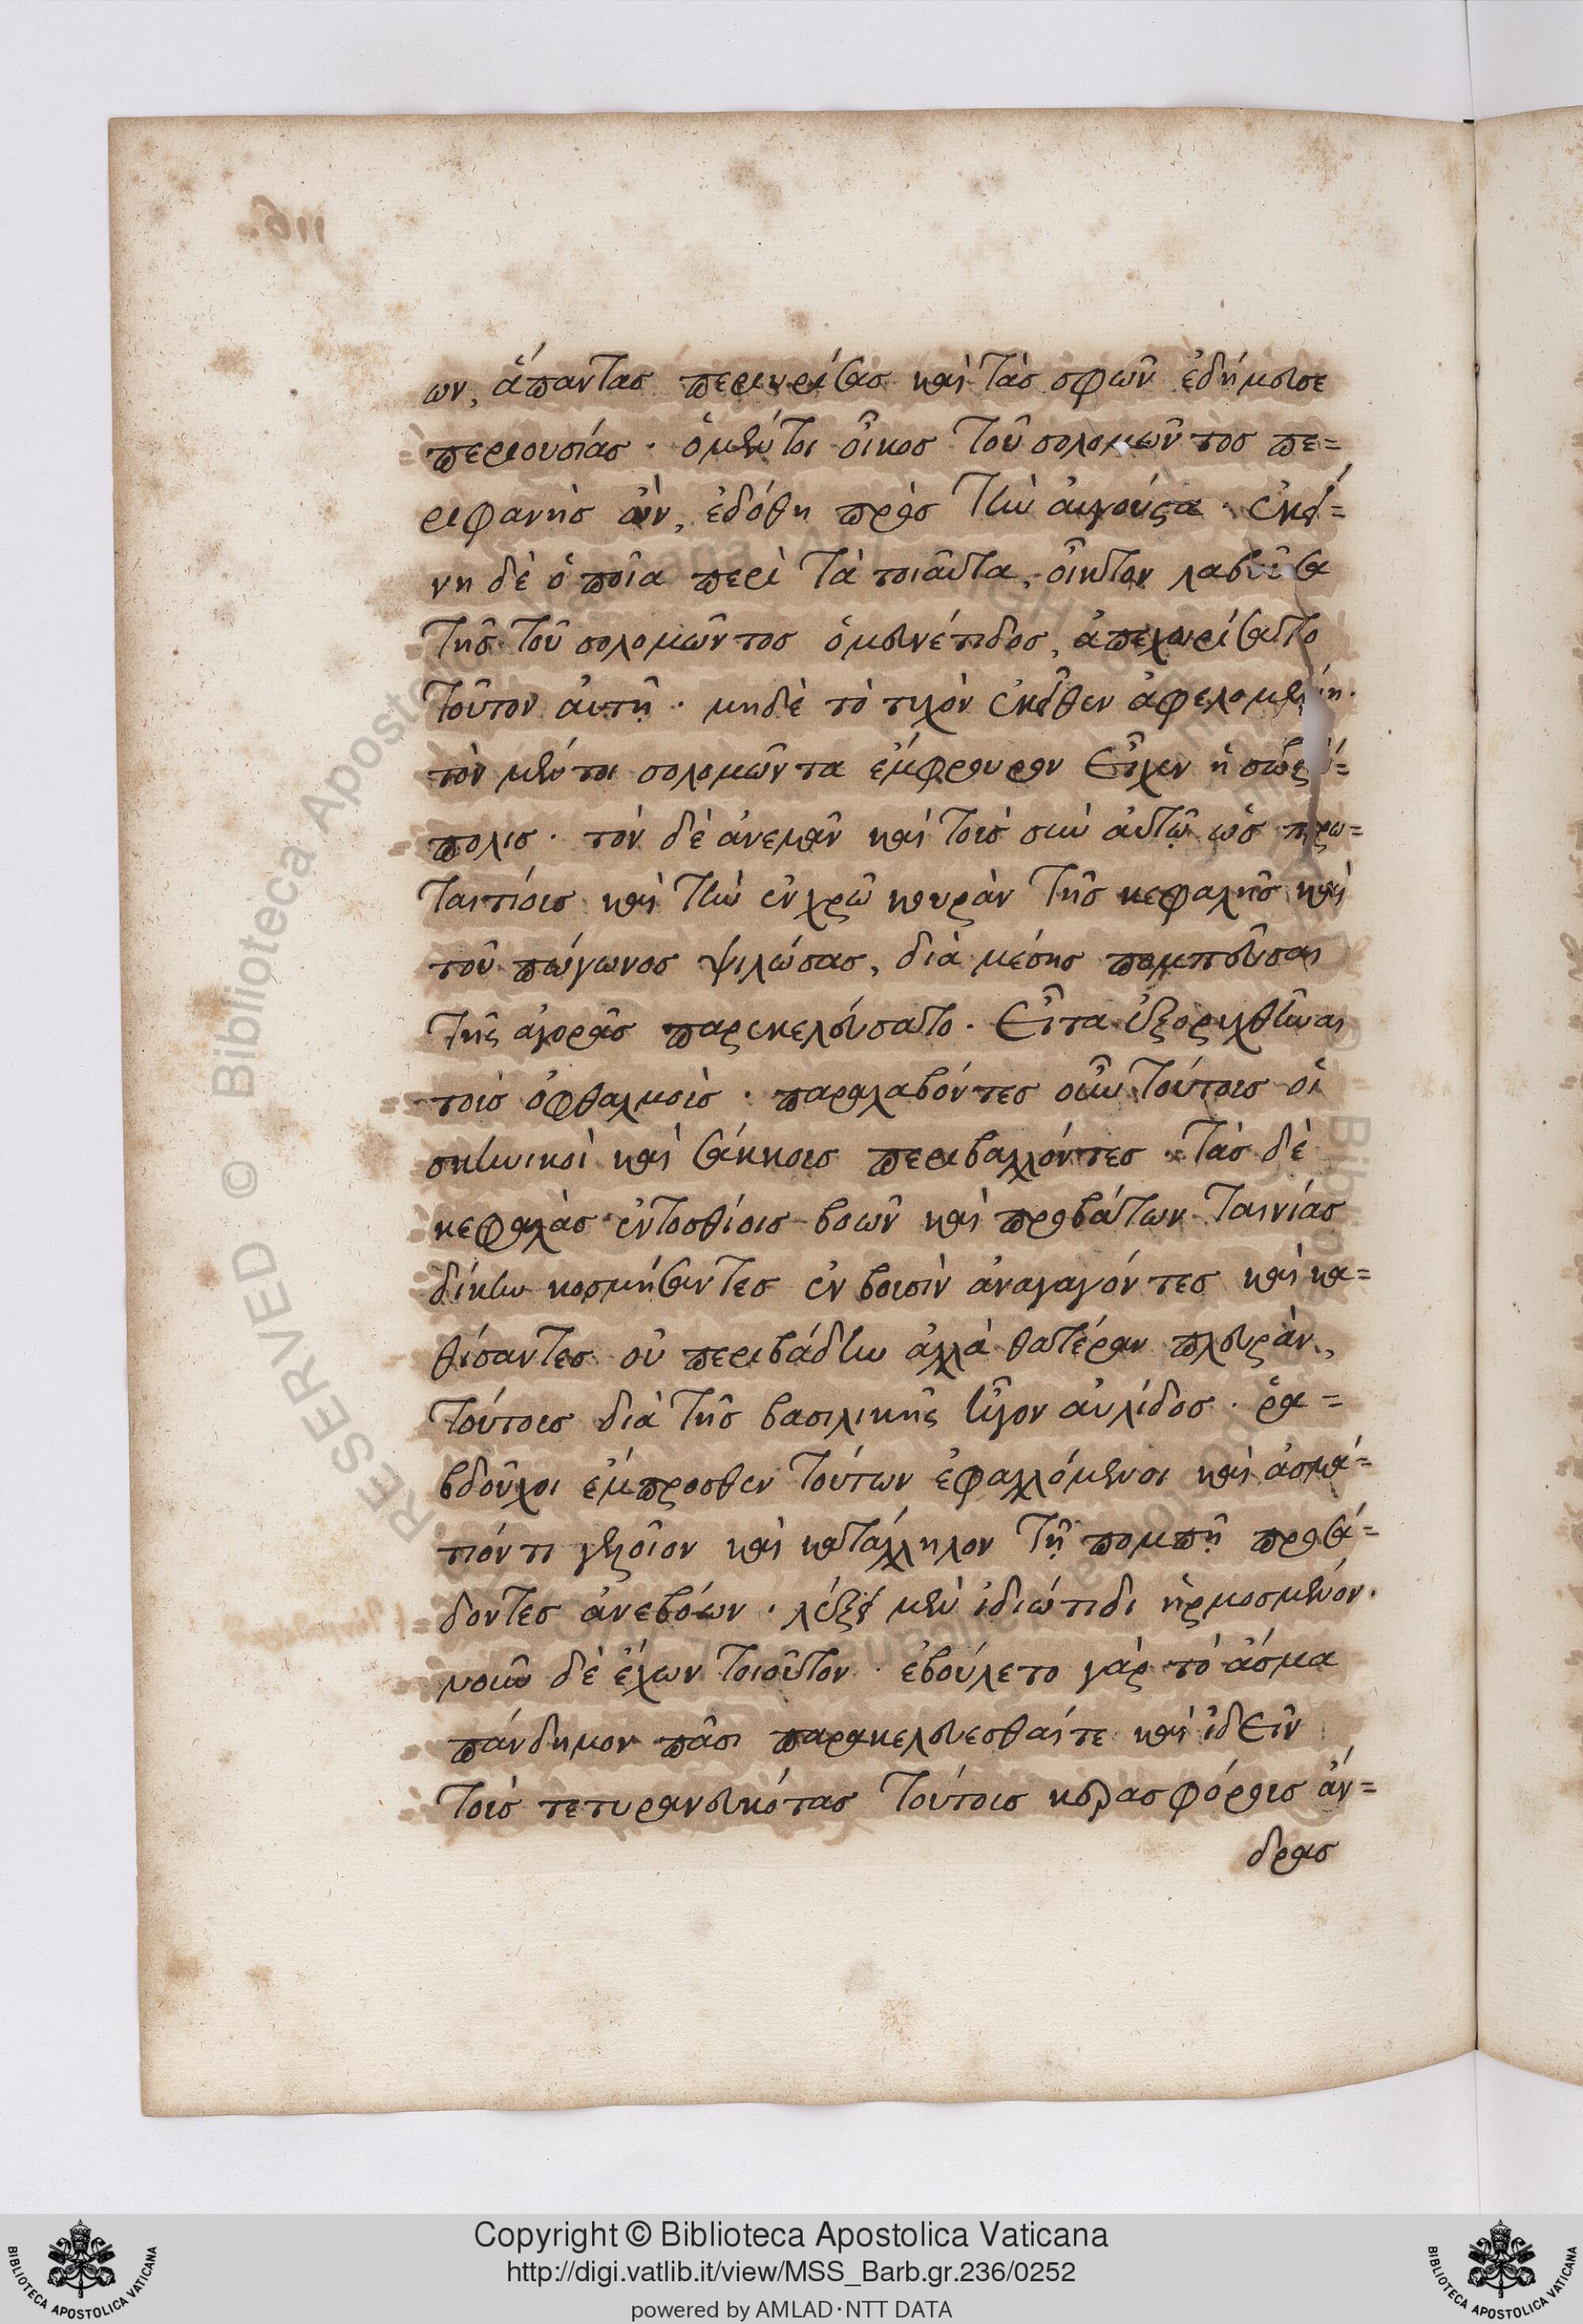 ων, ἅπαντας περιορίσας καὶ τὰς σφῶν ἐδήμευσε
περιουσίας · ὁ μέντοι οἶκος τοῦ σολομῶντος πε=
ριφανὴς ὢν, ἐδόθη πρὸς τὴν αὐγούσταν · ἐκεί=
νη δὲ ὁποῖα περὶ τὰ τοιαῦτα, οἶκτον λαβοῦσα
τῆς τοῦ σολομῶντος ὁμευνέτιδος, ἀπεχαρίσατο
τοῦτον αὐτῇ · μηδὲ τὸ τυχὸν ἐκεῖθεν ἀφελομένη ·
τὸν μέντοι σολομῶντα ἔμφρουρον εἶχεν ἡ σωζό=
πολις · τὸν δὲ ἀνεμᾶν καὶ τοὺς σὺν αὐτῷ ὡς πρω=
ταιτίους καὶ τὴν ἐν χρῷ κουρὰν τῆς κεφαλῆς καὶ
τοῦ πώγωνος ψιλώσας, διὰ μέσης πομπεῦσαι
τῆς ἀγορᾶς παρεκελεύσατο · εἶτα ἐξορυχθῆναι
τοὺς ὀφθαλμοὺς · παραλαβόντες οὖν τούτους οἱ
σκηνικοὶ καὶ σάκκους περιβαλλόντες · τὰς δὲ
κεφαλὰς ἐντοσθίοις βοῶν καὶ προβάτων ταινίας
δίκην κοσμήσαντες ἐν βουσὶν ἀναγαγόντες καὶ κα=
θίσαντες οὐ περιβάδην ἀλλὰ θατέραν πλευρὰν,
τούτους διὰ τῆς βασιλικῆς ἦγον αὐλίδος · ῥα=
βδοῦχοι ἔμπροσθεν τούτων ἐφαλλόμενοι καὶ ἀσμά=
τιόν τι γελοῖον καὶ κατάλληλον τῇ πομπῇ προσά=
δοντες ἀνεβόων · λέξει μὲν ἰδιώτιδι ἡρμοσμένον ·
νοῦν δὲ ἔχων τοιοῦτον · ἐβούλετο γὰρ τὸ ἆσμα
πάνδημον πᾶσι παρακελεύεσθαί τε καὶ ἰδεῖν
τοὺς τετυραννευκότας τούτους κερασφόρους ἄν=
δρας
Copyright © Biblioteca Apostolica Vaticana
http://digi.vatlib.it/view/MSS_Barb.gr.236/0252
powered by AMLAD·NTT DATA